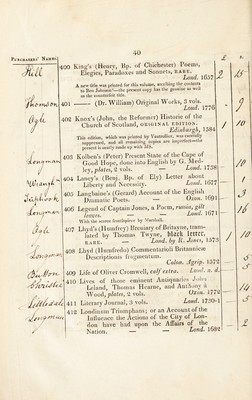 40
PURCHASERS' NAMES.
£ s.
Hill 400 King's (Henry, Bp. of Chichester) Poems,
Elegies, Paradoxes and Sonnets, RARE.
Lond. 1657 2 15
A new title was printed for this volume, ascribing the contents
to Ben Johnson!—the present copy has the genuine as well
as the counterfeit title.
Thomson 401 —— (Dr. William) Original Works, 3 vols.
Lond. 1776 9
Agle 402 Knox's (John, the Reformer) Historie of the
Church of Scotland, ORIGINAL EDITION.
Edinburgh, 1584 1 10
This edition, which was printed by Vautrollier, was carefully
suppressed, and all remaining copies are imperfect—the
present is neatly made up with MS.
Longman 403 Kolben's (Peter) Present State of the Cape of
Good Hope, done into English by G. Med-
ley, plates, 2 vols. — Lond. 1738
Waugh 404 Laney's (Benj. Bp. of Ely) Letter about
Liberty and Necessity. Lond. 1677
405 Langbaine's (Gerard) Account of the English
Dramatic Poets. — Oxon. 1691
Longman 406 Legend of Captain Jones, a Poem, russia, gilt
leaves. — — Lond. 1671 16
With the scarce frontispiece by Marshall.
Agle 407 Lloyd's (Humfrey) Breviary of Britayne, trans-
lated by Thomas Twyne, black letter,
RARE. Lond. by R. Jones, 1573 1 10
Longman 408 Llyd (Humfredo) Commentarioli Britannicæ
Descriptionis fragmentum.
Colon. Agrip. 1572
Button 409 Life of Oliver Cromwell, calf extra. Lond. n. d. 5
Christie 410 Lives of those eminent Antiquaries John
Leland, Thomas Hearne, and Anthony à
Wood, plates, 2 vols. Oxon. 1772 14
411 Literary Journal, 3 vols. Lond. 1730-1 5
Longman 412 Londinum Triumphans; or an Account of the
Influence the Actions of the City of Lon-
don have had upon the Affairs of the
Nation. — — Lond. 1682 2